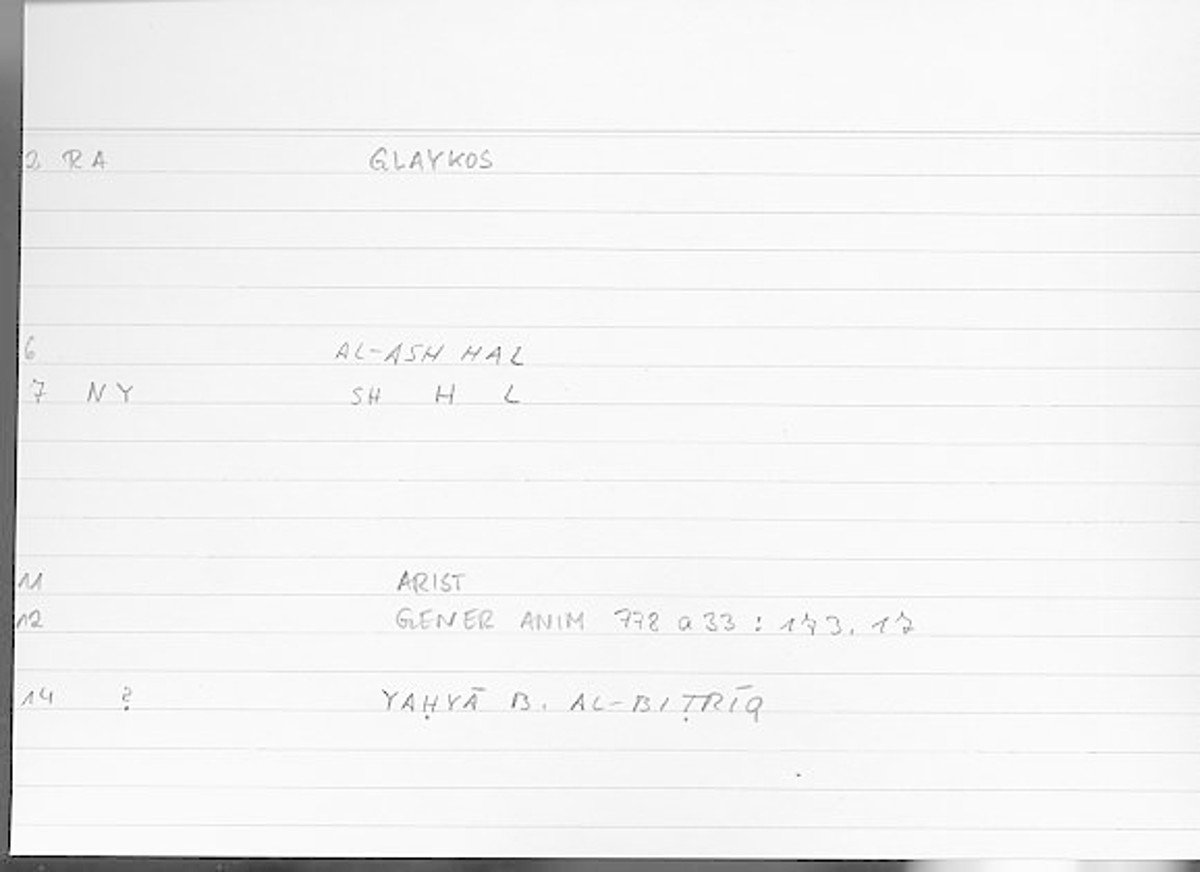 2 RA GLAYKOS
6 AL-ASH HAL
7 NY SH H L
11 ARIST
12 GENER ANIM 778 a 33 : 173. 17
14 ? YAḤYĀ B. AL-BIṬRĪQ